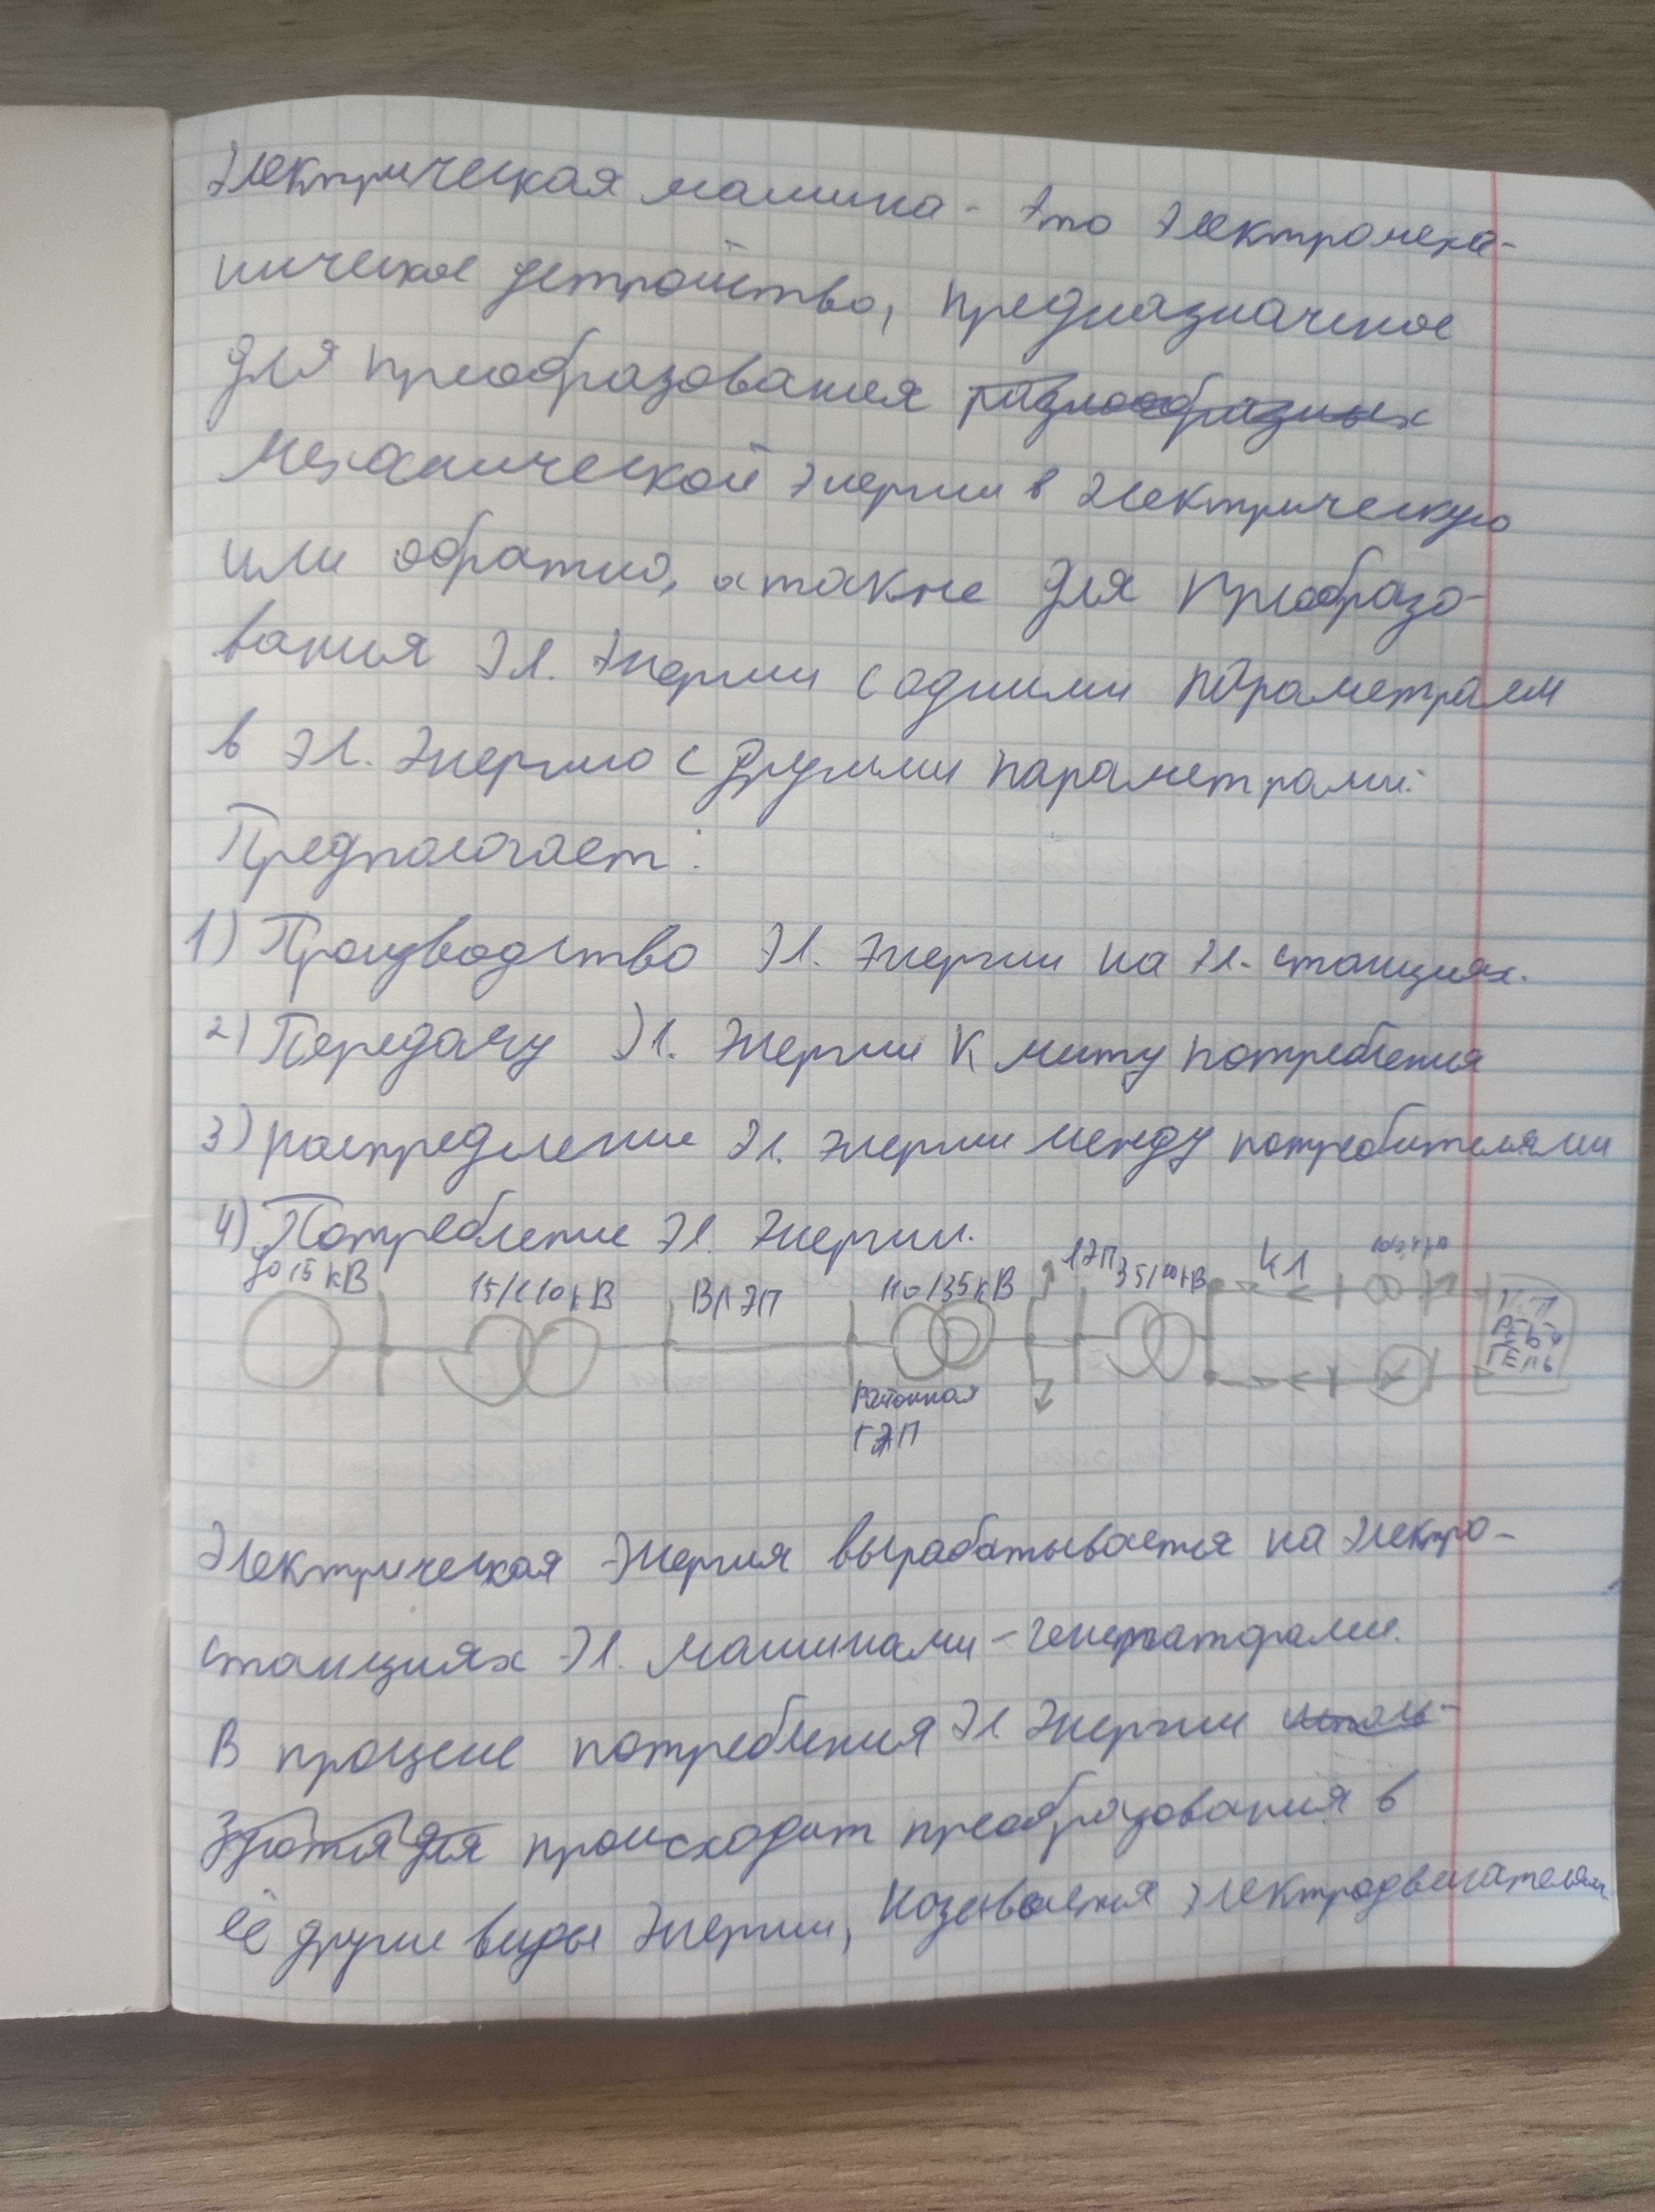 Электрическая машина - это электромеха-
ническое устройство, предназначеное
для преобразования разнообразных
механической энергии в электрическую
или обратно, а также для преобразо-
вания эл. энергии с одними параметрам
в эл. энергию с другими параметрами.
Предполагает:
1) Производство эл. энергии на эл. станциях.
2) Передачу эл. энергии к месту потребления
3) распределение эл. энергии между потребителями
4) Потребление эл. энергии.
до 15 кВ 15/110 кВ ВЛЭП 110/35кВ ЛЭП 35/10кВ КЛ
Районная
ГПП
Электрическая энергия вырабатывается на электро-
станциях эл. машинами - генераторами.
В процессе потребления эл энергии исполь-
зуются для происходит преобразования в
её другие виды энергии, называется электродвигателям